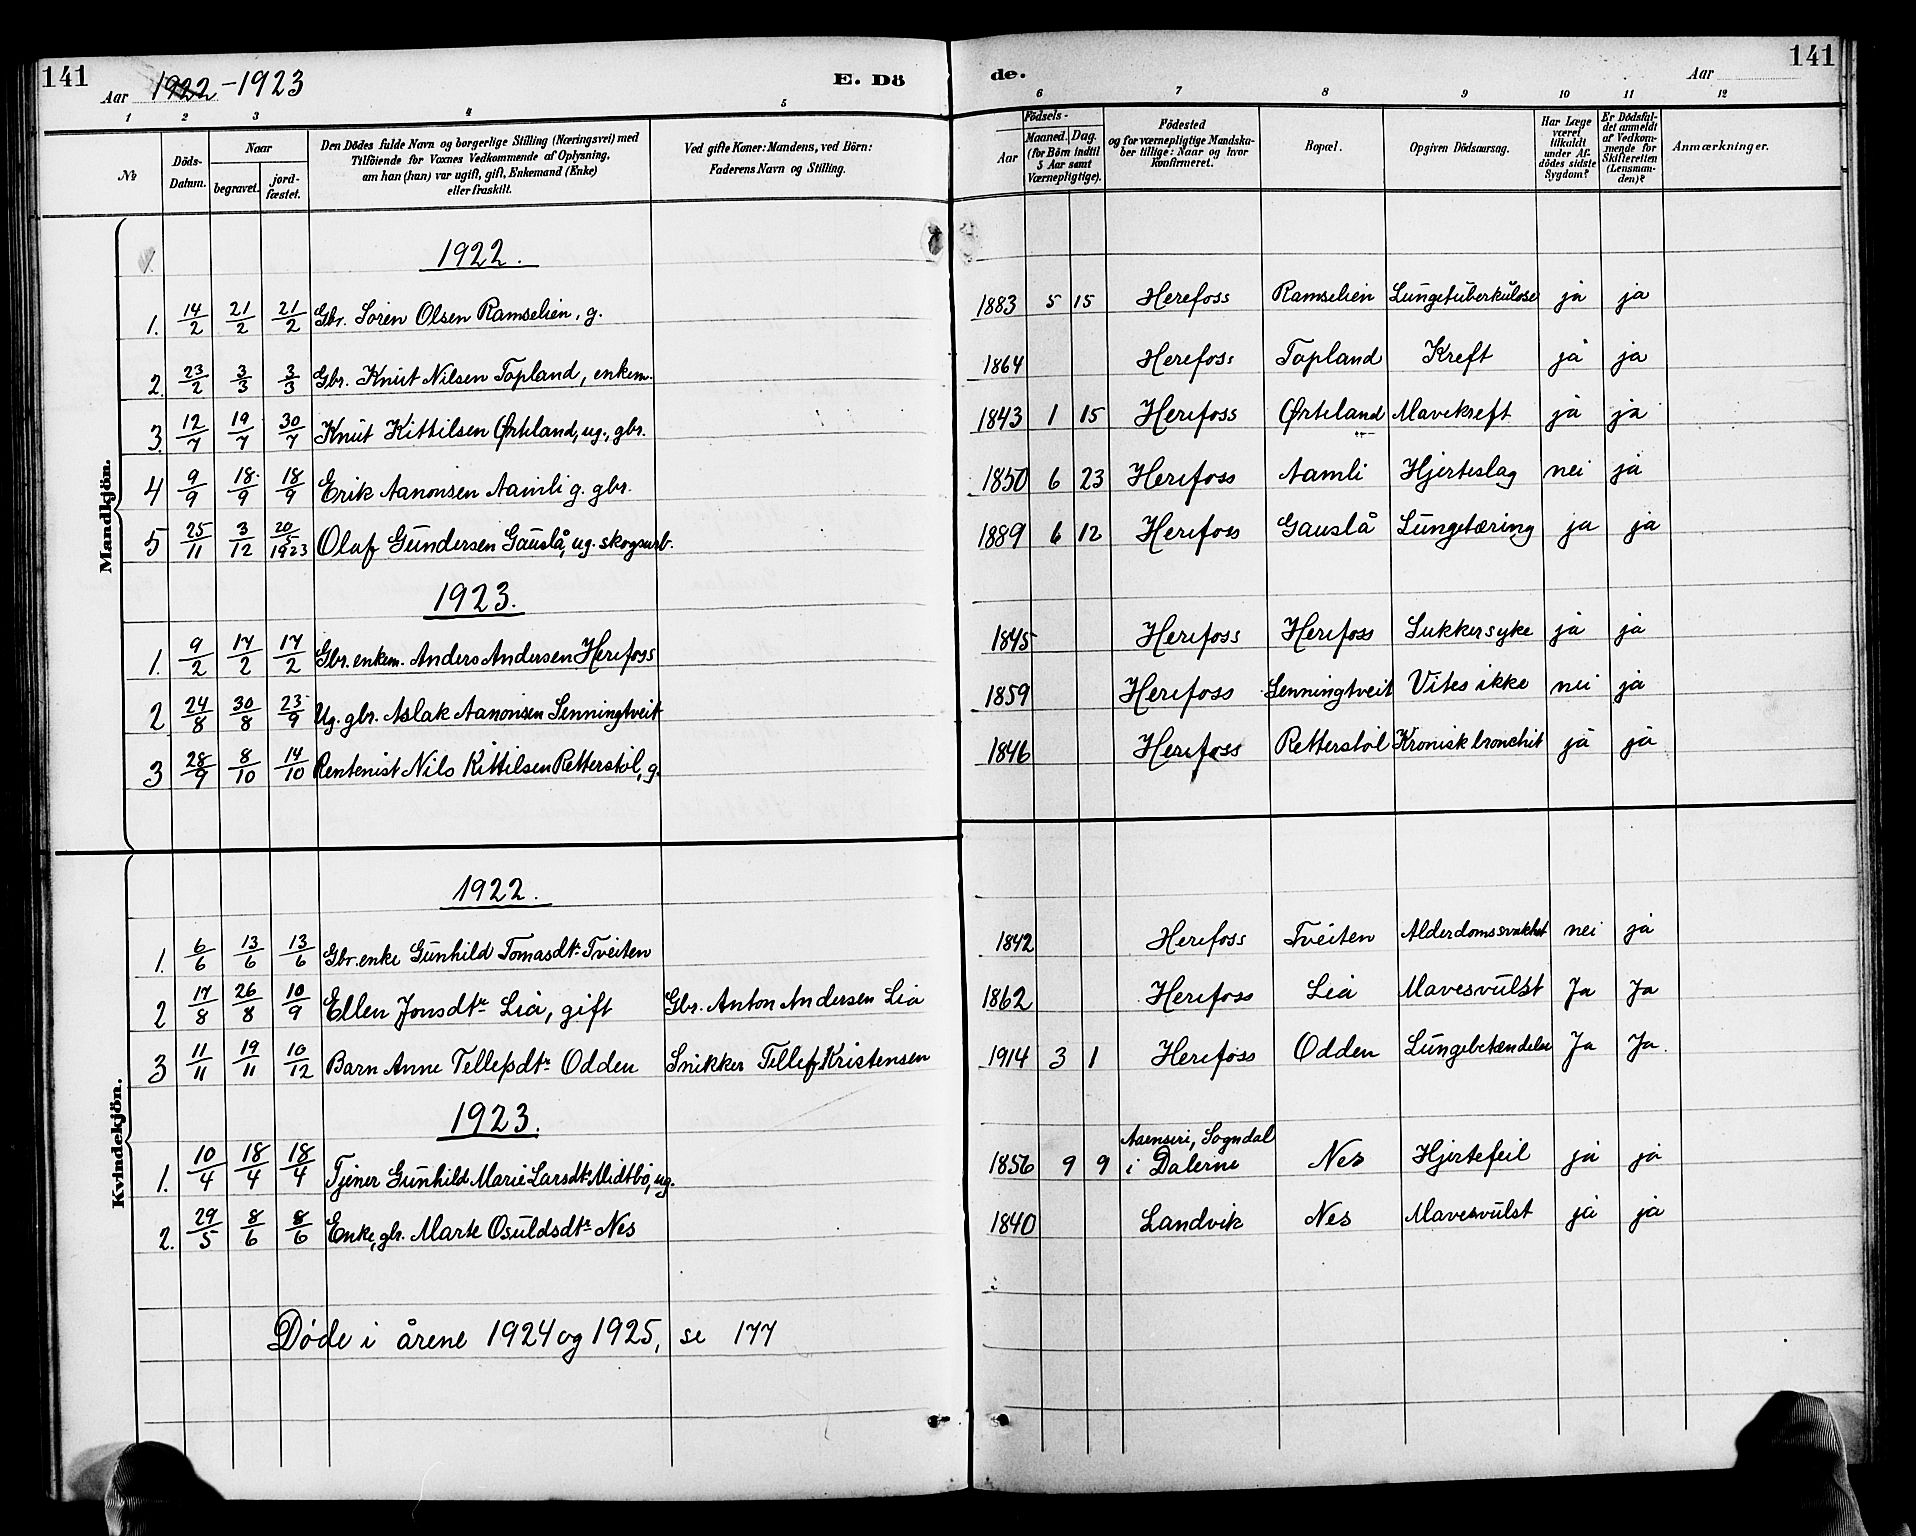 141
Aar 1922-1923
E. Dö
de.
Aar
141
1 2 3 4 5 6 7 8 9 10 11 12
No
Döds-Datum.
Naar
begravet.
jord-fæstet.
Den Dödes fulde Navn og borgerlige Stilling (Næringsvei) med
Tilföiende for Voxnes Vedkommende af Oplysning,
om han (hun) var ugift, gift, Enkemand (Enke)
eller fraskilt.
Ved gifte Koner: Mandens, ved Börn:
Faderens Navn og Stilling.
Födsels-
Aar
Maaned. Dag.
(for Börn indtil
5 Aar samt
Værnepligtige).
Födested
og for værnepligtige Mandska-
ber tillige: Naar og hvor
Konfirmeret.
Bopæl.
Opgiven Dödsaarsag.
Har Læge
været
tilkaldt
under Af-
dödes sidste
Sygdom?
Er Dödsfal-
det anmeldt
af Vedkom-
mende for
Skifteretten
(Lensman-
den)?
Anmærkninger.
Mandkjön.
1922.
1. 14/2 21/2 21/2 Gbr. Sören Olsen Ramselien, g. 1883 5 15 Herefoss Ramselien Lungetuberkulose ja ja
2. 23/2 3/3 3/3 Gbr. Knut Nilsen Topland, enkem. 1864 Herefoss Topland Kreft ja ja
3. 12/7 19/7 30/7 Knut Kittilsen Ørteland, ug., gbr. 1843 1 15 Herefoss Ørteland Mavekreft ja ja
4 9/9 18/9 18/9 Erik Aanonsen Aamli g. gbr. 1850 6 23 Herefoss Aamli Hjerteslag nei ja
5 25/11 3/12 20/5 1923 Olaf Gundersen Gauslå, ug. skogsarb. 1889 6 12 Herefoss Gauslå Lungetæring ja ja
1923.
1. 9/2 17/2 17/2 Gbr. enkem. Anders Andersen Herefoss 1845 Herefoss Herefoss Sukkersyke ja ja
2 24/8 30/8 23/9 Ug. gbr. Aslak Aanonsen Senningtveit 1859 Herefoss Senningtveit Vites ikke nei ja
3 28/9 8/10 14/10 Rentenist Nils Kittilsen Retterstøl, g. 1846 Herefoss Retterstøl Kronisk bronchit ja ja
Kvindekjön.
1922.
1. 6/6 13/6 13/6 Gbr. enke Gunhild Tomasdtr Tveiten 1842 Herefoss Tveiten Alderdomssvakhet nei ja
2 17/8 26/8 10/9 Ellen Jonsdtr Lia, gift Gbr. Anton Andersen Lia 1862 Herefoss Lia Mavesvulst Ja Ja
3 11/11 19/11 10/12 Barn Anne Tellefsdtr Odden Snikker Tellef Kristensen 1914 3 1 Herefoss Odden Lungebetændelse Ja Ja.
1923.
1. 10/4 18/4 18/4 Tjener Gunhild Marie Larsdtr Midtbø, ug. 1856 9 9 Aaenseri, Sogndal
i Dalerne Nes Hjertefeil ja ja
2. 29/5 8/6 8/6 Enke, gbr. Marte Osuldsdtr Nes 1840 Landvik Nes Mavesvulst ja ja
Døde i årene 1924 og 1925, se 177